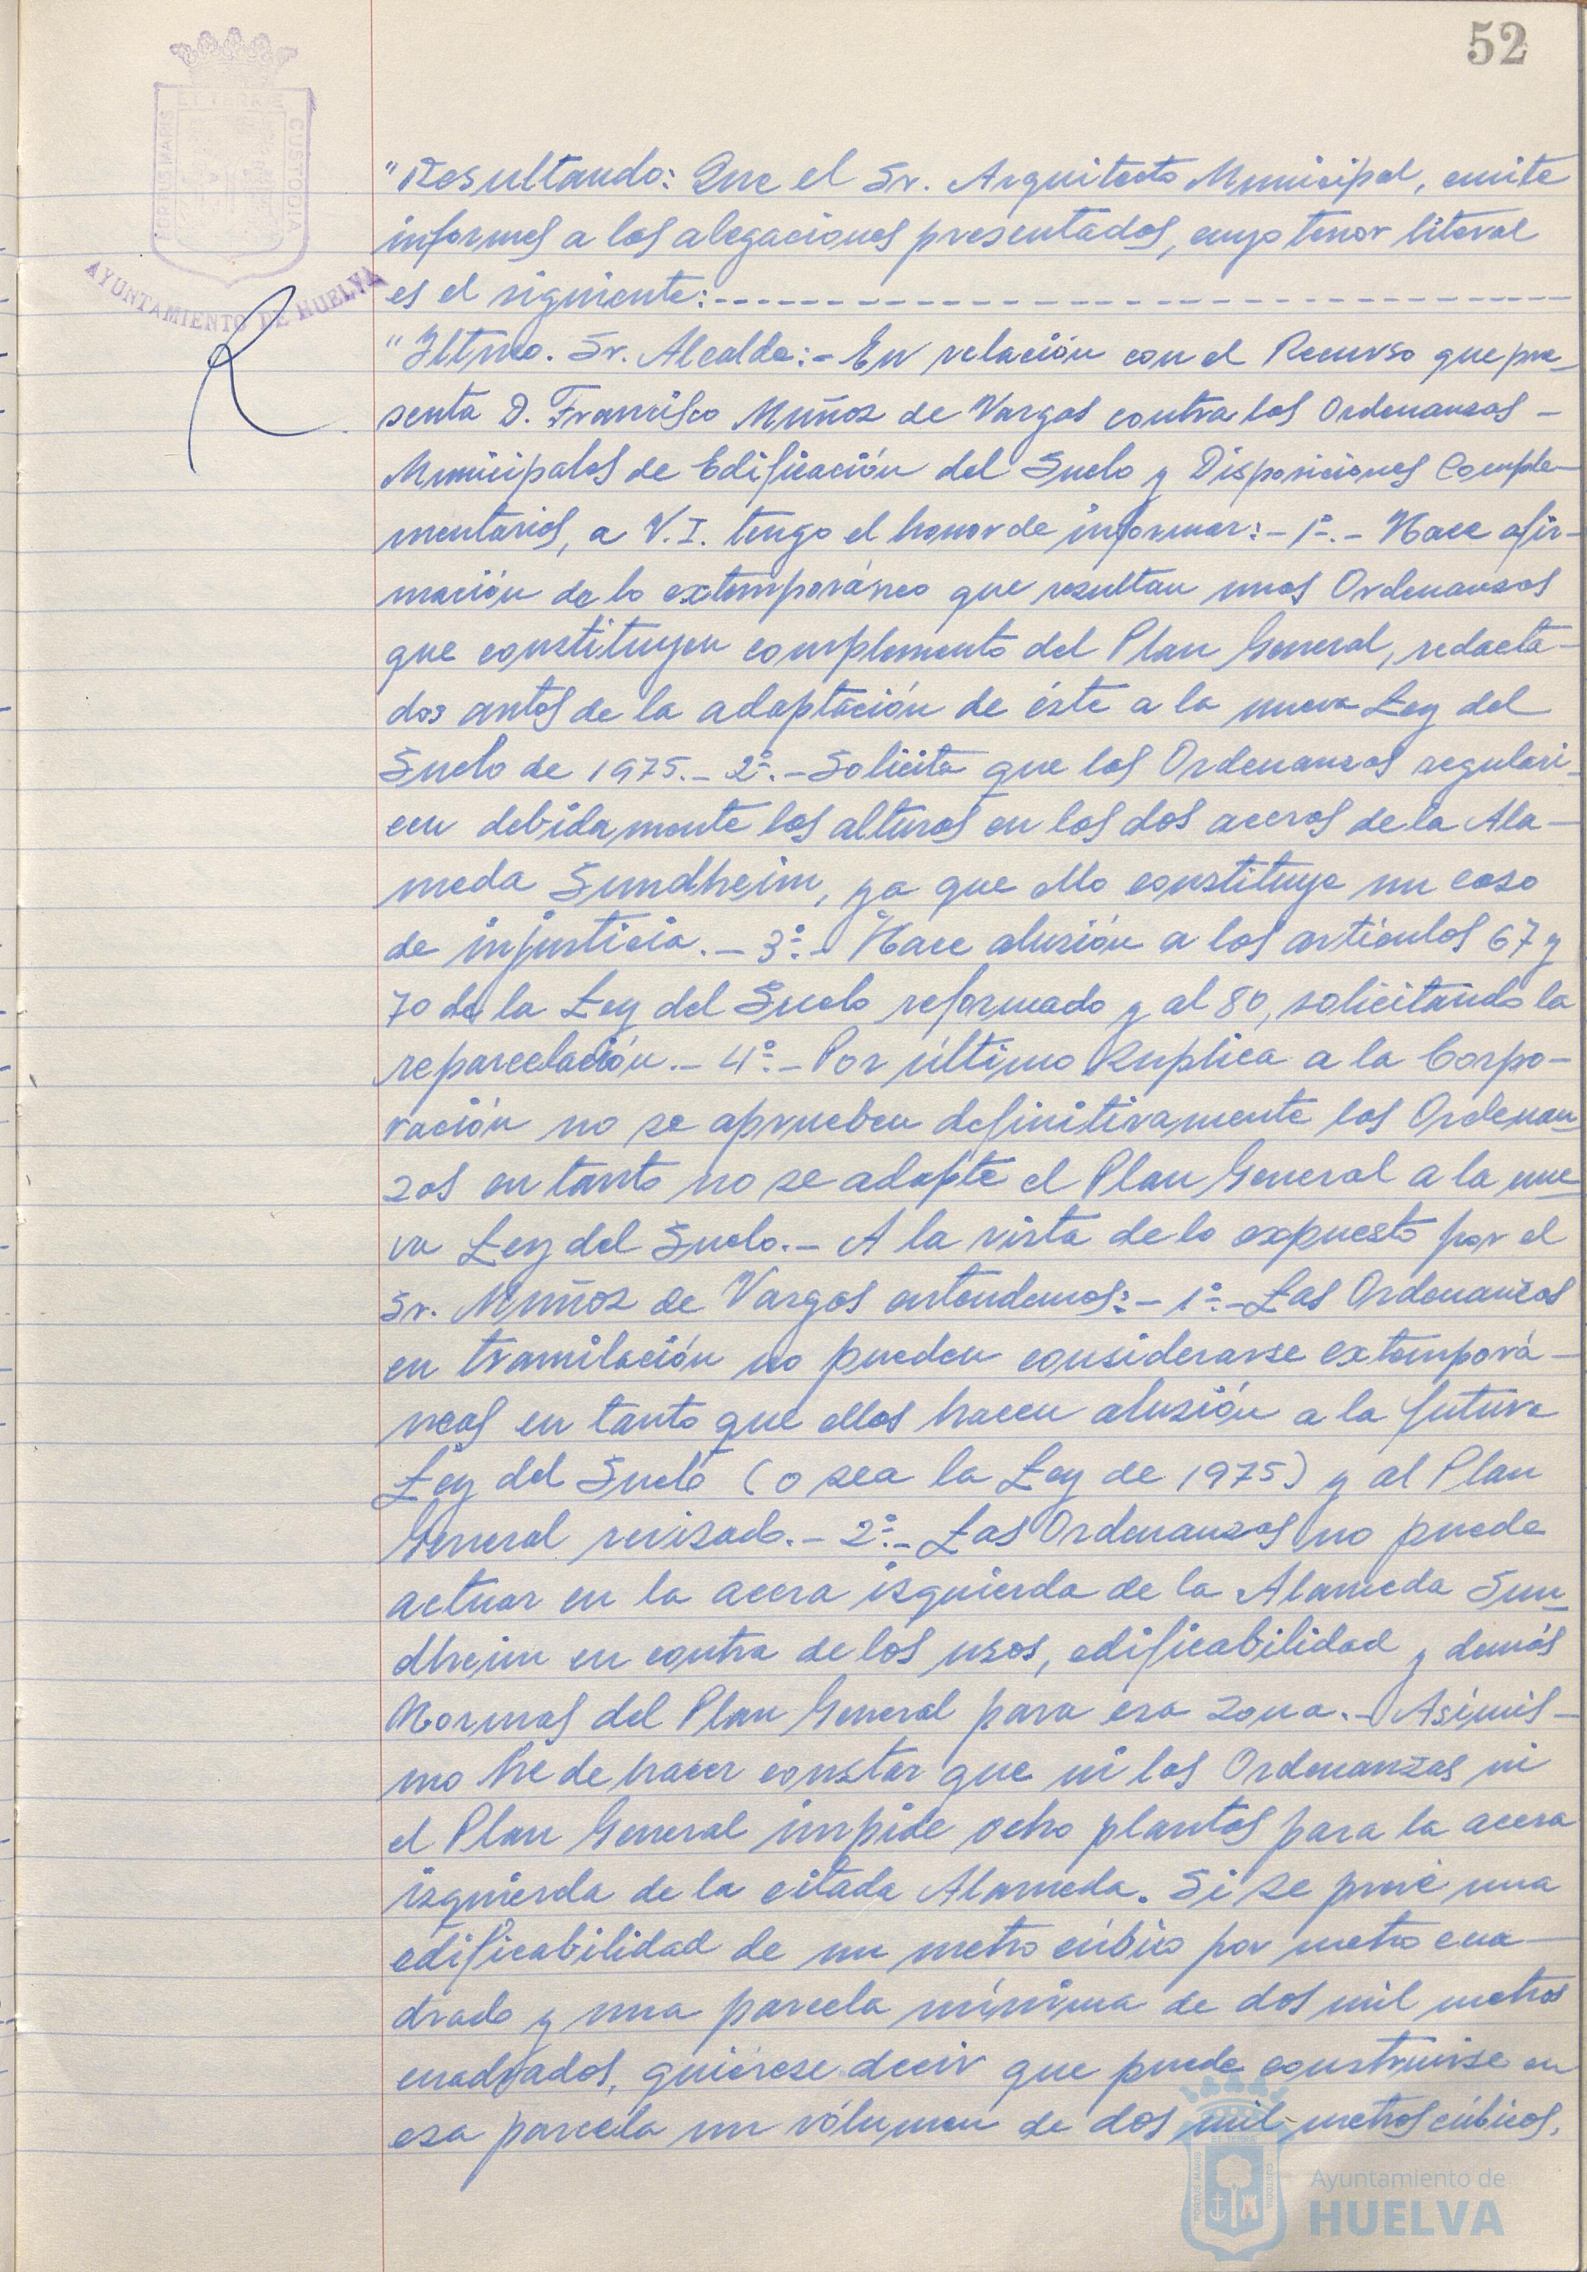 52
ET TERRÆ
PORTUS MARIS
CUSTODIA
AYUNTAMIENTO DE HUELVA
"Resultando: Que el Sr. Arquitecto Municipal, emite
informes a las alegaciones presentadas, cuyo tenor literal
es el siguiente:------------------------------
"Iltmo. Sr. Alcalde:- En relación con el Recurso que pre-
senta D. Francisco Muñoz de Vargas contra las Ordenanzas -
Municipales de Edificación del Suelo y Disposiciones Comple-
mentarias, a V.I. tengo el honor de informar:- 1º.- Hace afir-
mación de lo extemporáneo que resultan unas Ordenanzas
que constituyen complemento del Plan General, redacta-
das antes de la adaptación de éste a la nueva Ley del
Suelo de 1975.- 2º.- Solicita que las Ordenanzas regulari-
cen debidamente las alturas en las dos aceras de la Ala-
meda Sundheim, ya que ello constituye un caso
de injusticia.- 3º.- Hace alusión a los artículos 67 y
70 de la Ley del Suelo reformado y al 80, solicitando la
reparcelación.- 4º.- Por último suplica a la Corpo-
ración no se aprueben definitivamente las Ordenan-
zas en tanto no se adapte el Plan General a la nue-
va Ley del Suelo.- A la vista de lo expuesto por el
Sr. Muñoz de Vargas entendemos:- 1º.- Las Ordenanzas
en tramilación no pueden considerarse extemporá-
neas en tanto que ellas hacen alusión a la futura
Ley del Suelo (o sea la Ley de 1975) y al Plan
General revisado.- 2º.- Las Ordenanzas no puede
actuar en la acera izquierda de la Alameda Sun-
dheim en contra de los usos, edificabilidad y demás
Normas del Plan General para esa zona.- Asimis-
mo he de hacer constar que ni las Ordenanzas ni
el Plan General impide ocho plantas para la acera
izquierda de la citada Alameda. Si se prevé una
edificabilidad de un metro cúbico por metro cua-
drado y una parcela mínima de dos mil metros
cuadrados, quiérese decir que puede construirse en
esa parcela un vólumen de dos mil metros cúbicos,
PORTUS MARIS
ET TERRÆ
CUSTODIA
Ayuntamiento de
HUELVA